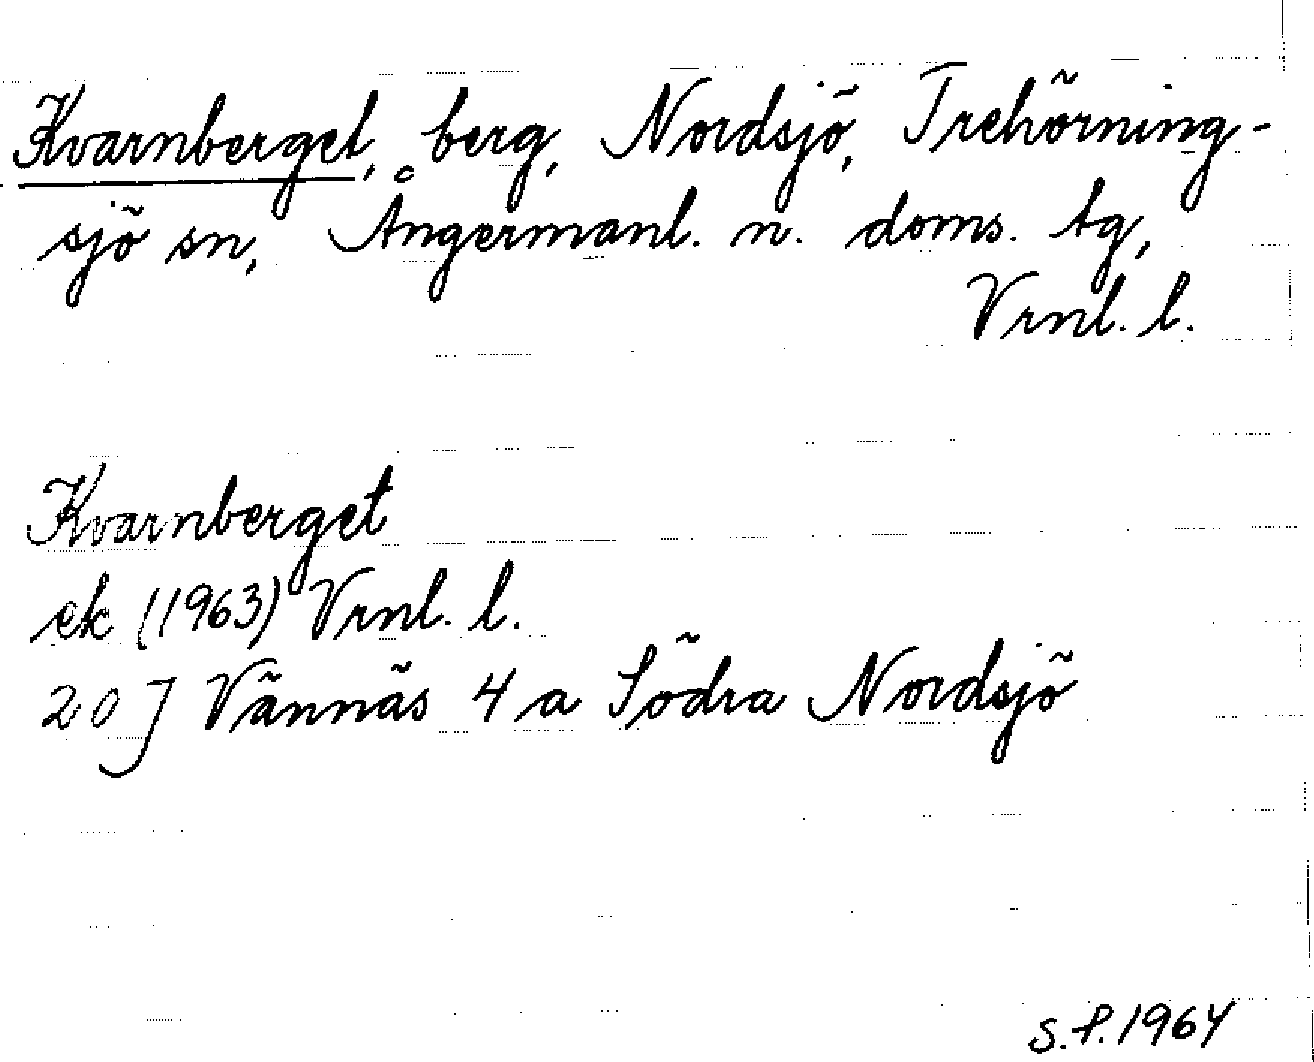 Kvarnberget, berg, Nordsjö, Trehörning-
sjö sn, Ångermanl. n. doms. tg,
Vrnl. l.
Kvarnberget
ek (1963) Vrnl. l.
20 J Vännäs 4 a Södra Nordsjö
S.P. 1964